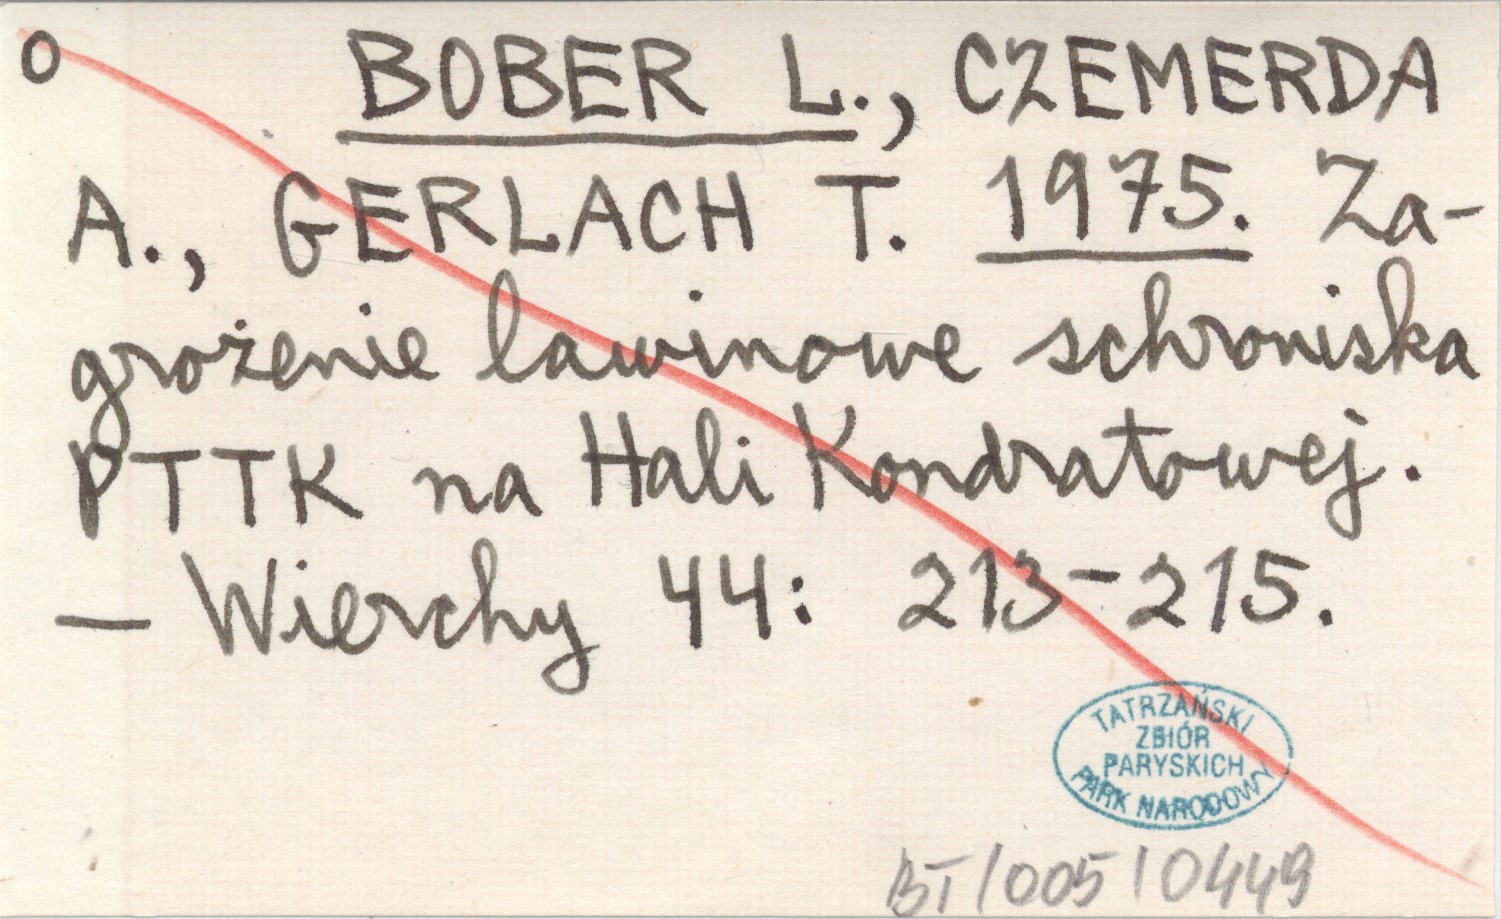 o BOBER L., CZEMERDA
A., GERLACH T. 1975. Za-
grożenie lawinowe schroniska
PTTK na Hali Kondratowej.
— Wierchy 44: 213-215.
TATRZAŃSKI
ZBIÓR
PARYSKICH
PARK NARODOWY
BT/005/0449